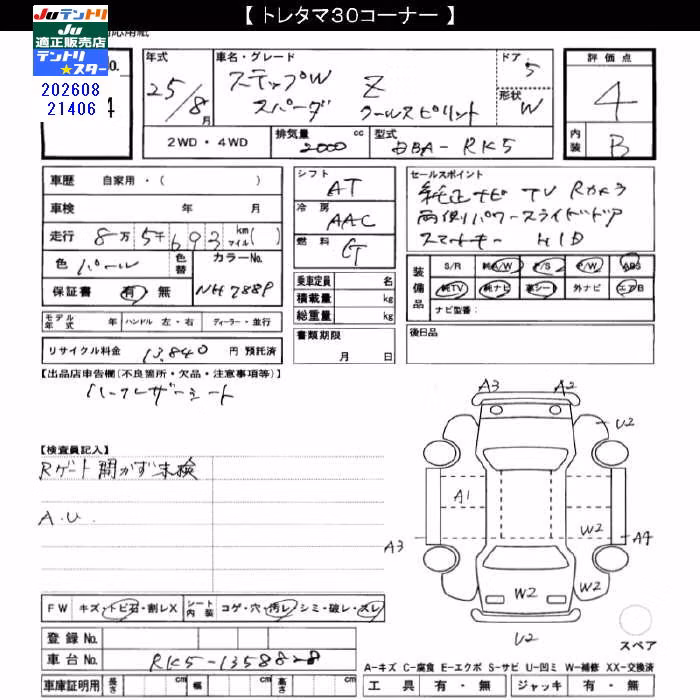 【 トレタマ30コーナー 】
JUテントリ
JU
適正販売店
テントリ
★スター
202608
21406
年式
車名・グレード
ドア
評価点
25/8月
ステップW Z
スパーダ クールスピリット
5
形状
W
4
2WD・4WD
排気量 2000 cc
型式 DBA-RK5
内装 B
車歴 自家用・( )
車検 年 月
走行 8万5千693 km マイル( )
色 パール
色替
カラーNo.
NH788P
保証書 有 無
モデル年式 年
ハンドル 左・右
ディーラー・並行
リサイクル料金 13,840 円 預託済
シフト AT
冷房 AAC
燃料 G
乗車定員 名
積載量 kg
総重量 kg
書類期限
月 日
セールスポイント
純正ナビ TV Rカメラ
両側パワースライドドア
スマートキー HID
装備品
S/R 純A/W P/S P/W ABS
純TV 純ナビ 革シート 外ナビ エアB
ナビ型番:
後日品
【出品店申告欄(不良箇所・欠品・注意事項等)】
ハーフレザーシート
【検査員記入】
Rゲート開かず未検
A.U.
A3 A2
U2
A1
W2
A4
A3
W2 W2
U2
スペア
FW キズ・トビ石・割レX
シート内装 コゲ・穴・汚レ シミ・破レ・スレ
登録No.
車台No. RK5-1358828
車庫証明用 長さ cm 幅 cm 高さ cm
A-キズ C-腐食 E-エクボ S-サビ U-凹ミ W-補修 XX-交換済
工具 有・無 ジャッキ 有・無